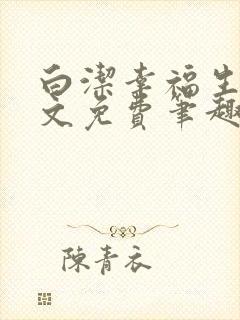 白潔幸福生
文免費筆趣
陳青衣